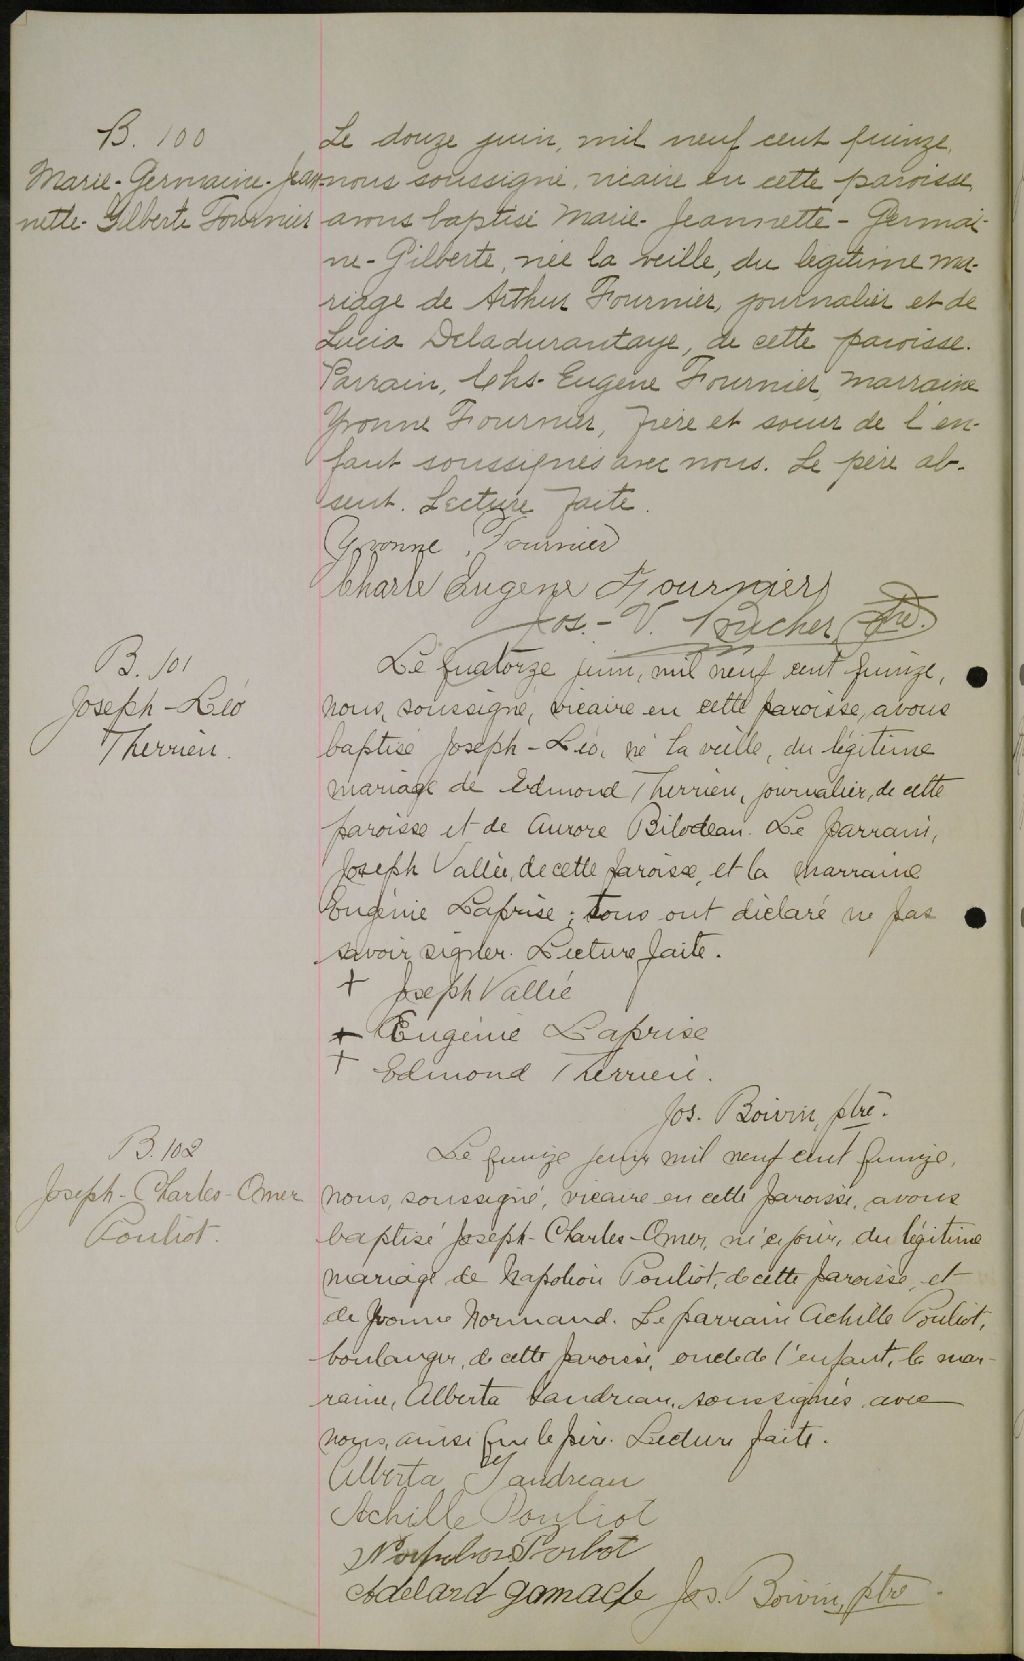 B. 100
Marie-Germaine-Jean-
nette-Gilberte Fournier
Le douze juin, mil neuf cent quinze,
nous soussigné, vicaire en cette paroisse
avons baptisé Marie-Jeannette-Germai-
ne-Gilberte, née la veille, du légitime ma-
riage de Arthur Fournier, journalier et de
Lucia Deladurantaye, de cette paroisse.
Parrain, Chs-Eugène Fournier, marraine
Yvonne Fournier, frère et soeur de l'en-
fant soussignés avec nous. Le père ab-
sent. Lecture faite.
Yvonne Fournier
Charle Eugene Fournier
Jos.-V. Bucher, ptre.
B. 101
Joseph-Léo
Therrien.
Le quatorze juin, mil neuf cent quinze,
nous, soussigné, vicaire en cette paroisse, avons
baptisé Joseph-Léo, né la veille, du légitime
mariage de Edmond Therrien, journalier, de cette
paroisse et de Aurore Bilodeau. Le parrain,
Joseph Vallée, de cette paroisse, et la marraine
Eugénie Laprise; tous ont déclaré ne pas
savoir signer. Lecture faite.
+ Joseph Vallée
+ Eugénie Laprise
+ Edmond Therrien.
Jos. Boivin, ptre.
B. 102
Joseph-Charles-Omer
Pouliot.
Le quinze juin mil neuf cent quinze,
nous, soussigné, vicaire en cette paroisse, avons
baptisé Joseph-Charles-Omer, né ce jour, du légitime
mariage de Napoléon Pouliot, de cette paroisse, et
de Yvonne Normand. Le parrain Achille Pouliot,
boulanger, de cette paroisse, oncle de l'enfant, la mar-
raine, Alberta Gaudreau, soussignés avec
nous, ainsi que le père. Lecture faite.
Alberta Gaudreau
Achille Pouliot
Napoleon Pouliot
Adelard gamache Jos. Boivin, ptre.